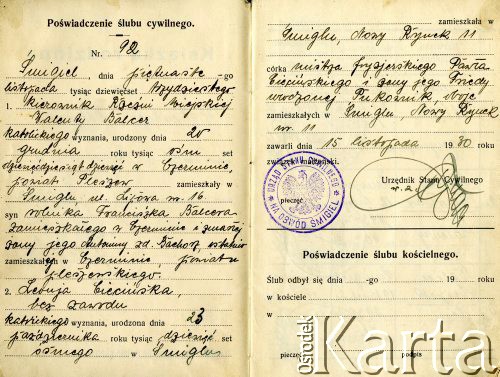 Poświadczenie ślubu cywilnego.
Nr. 92
Śmigiel, dnia piętnaste -go
listopada tysiąc dziewięćset trzydziestego
1. Kierownik Rzeźni Miejskiej
Walenty Balcer
katolickiego wyznania, urodzony dnia 20
grudnia roku tysiąc ośm set
dziewięćdziesiąt dziewięć w Czerminie,
powiat Pleszew zamieszkały w
Śmiglu, ul. Lipowa nr. 16
syn rolnika Franciszka Balcera
zamieszkałego w Czerminie i zmarłej
żony jego Antoniny zd. Bachorz, ostatnio
zamieszkałych w Czerminie, powiatu
pleszewskiego.
2. Leonja Cicińska,
bez zawodu
katolickiego wyznania, urodzona dnia 23
października roku tysiąc dziewięć set
ósmego w Śmiglu
zamieszkała w
Śmiglu, Nowy Rynek 11
córka mistrza fryzjerskiego Pawła
Cicińskiego i żony jego
urodzonej
zamieszkałych w Śmiglu, Nowy Rynek
nr. 11
zawarli dnia 15 listopada 1930 roku
związek małżeński.
URZĄD STANU CYWILNEGO
NA OBWÓD ŚMIGIEL
pieczęć
Urzędnik Stanu Cywilnego
Poświadczenie ślubu kościelnego.
Ślub odbył się dnia -go 19 roku
w kościele
w
pieczęć podpis
Ośrodek
Karta